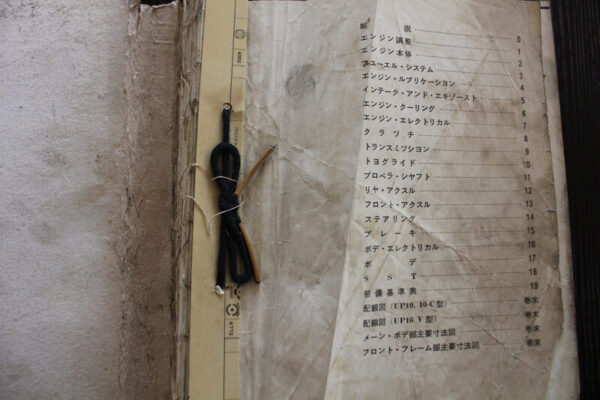 総 説 0
エンジン調整 1
エンジン本体 2
フユーエル・システム 3
エンジン・ルブリケーション 4
インテーク・アンド・エキゾースト 5
エンジン・クーリング 6
エンジン・エレクトリカル 7
クラツチ 8
トランスミツシヨン 9
トヨグライド 10
プロペラ・シヤフト 11
リヤ・アクスル 12
フロント・アクスル 13
ステアリング 14
ブレーキ 15
ボデ・エレクトリカル 16
ボデ 17
SST 18
整備基準表 19
配線図(UP10, 10-C型) 巻末
配線図(UP16-V型) 巻末
メーン・ボデ部主要寸法図 巻末
フロント・フレーム部主要寸法図 巻末